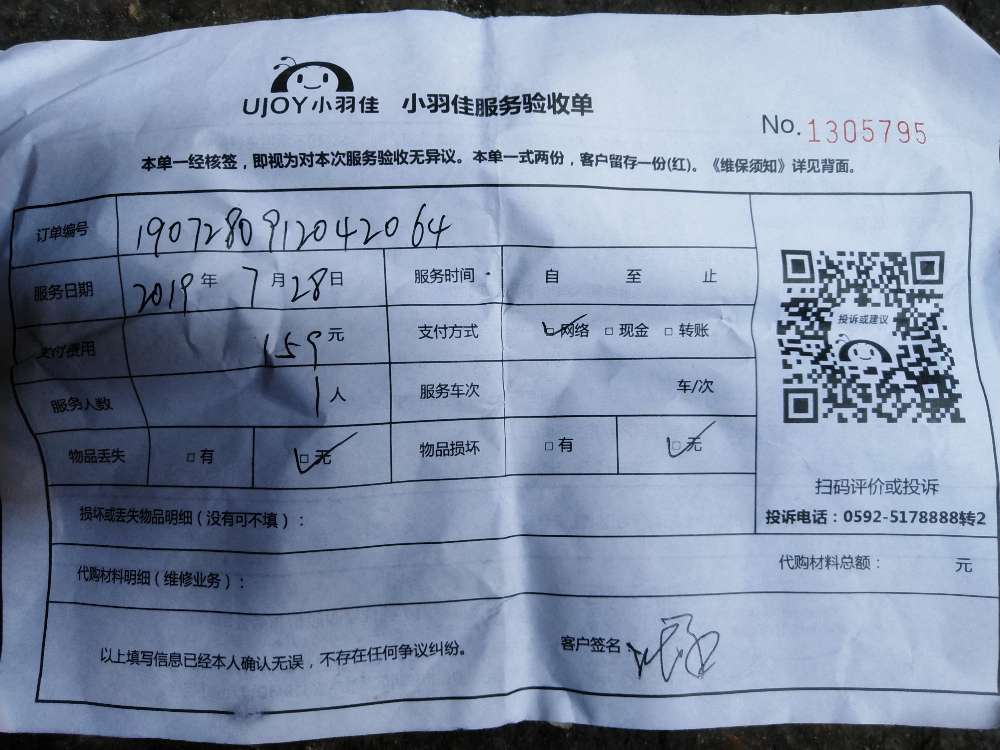 UJOY小羽佳 小羽佳服务验收单
No. 1305795
本单一经核签，即视为对本次服务验收无异议。本单一式两份，客户留存一份(红)。《维保须知》详见背面。
订单编号 1907280912042064
服务日期 2019年 7月28日 服务时间 自 至 止
支付费用 159元 支付方式 □网络 □现金 □转账
服务人数 1人 服务车次 车/次
物品丢失 □有 □无 物品损坏 □有 □无
投诉或建议
扫码评价或投诉
投诉电话：0592-5178888转2
损坏或丢失物品明细（没有可不填）：
代购材料明细（维修业务）： 代购材料总额： 元
以上填写信息已经本人确认无误，不存在任何争议纠纷。 客户签名